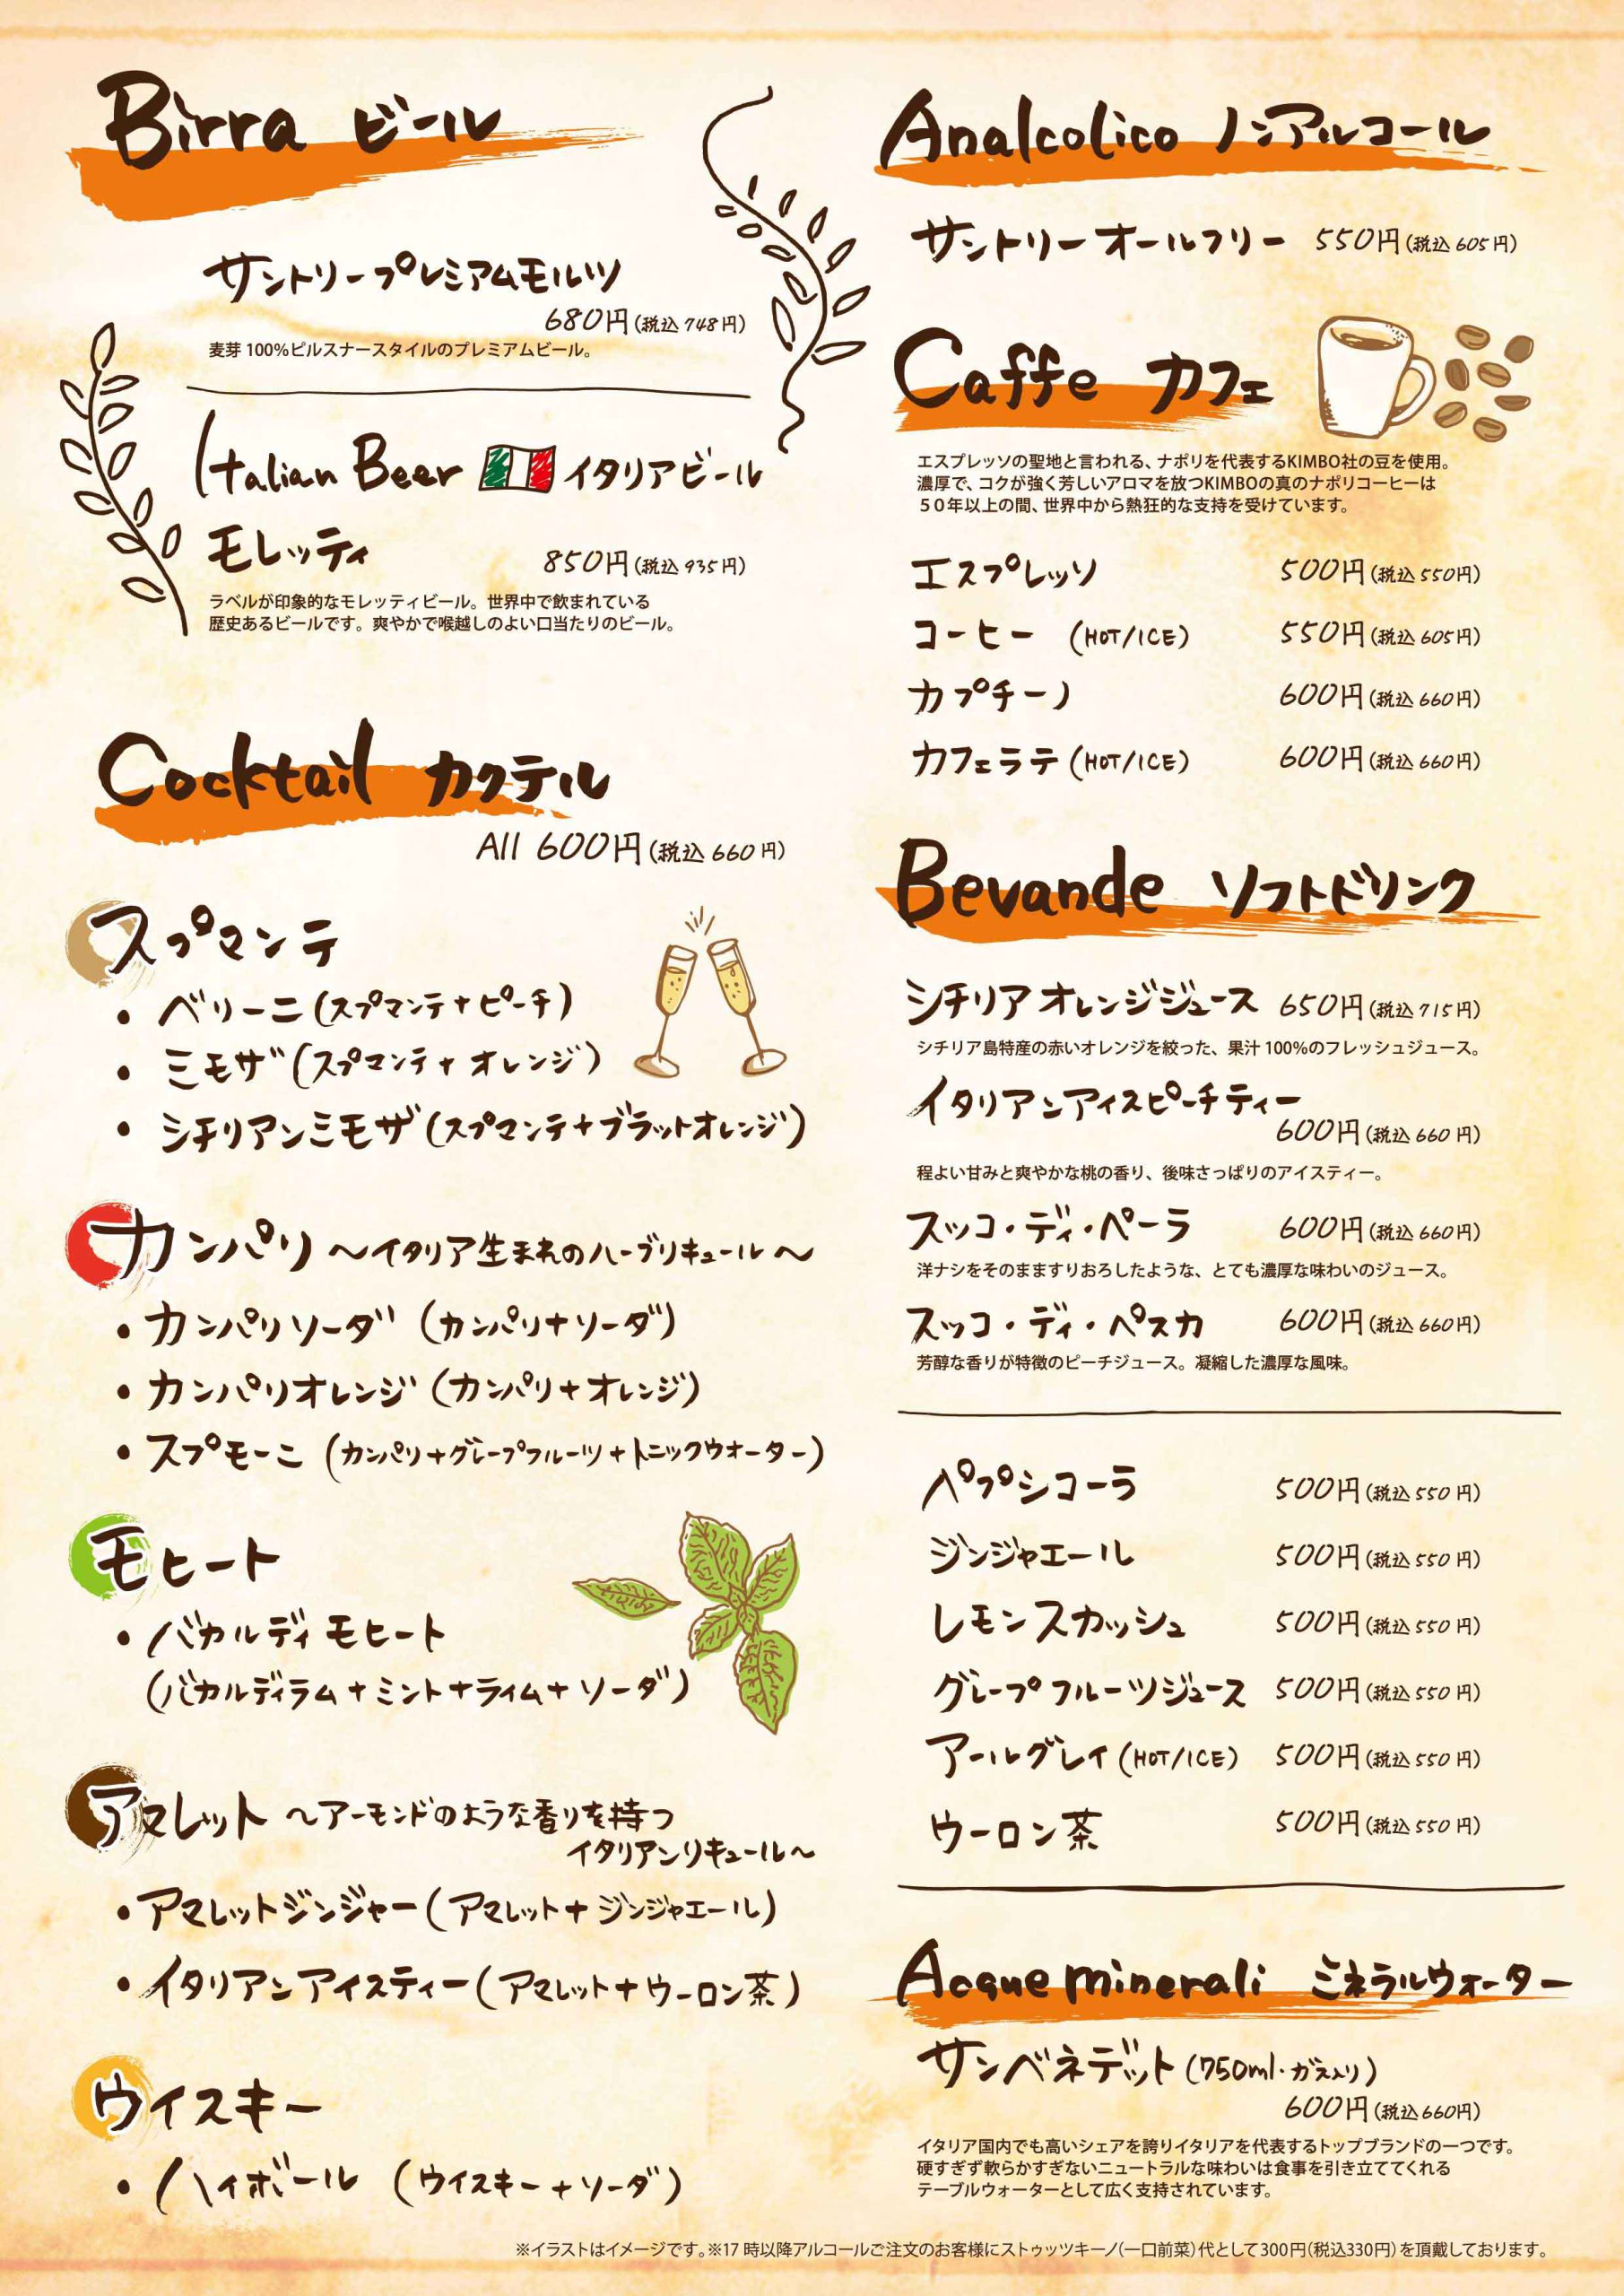 Birra ビール
サントリープレミアムモルツ
680円(税込748円)
麦芽100%ピルスナースタイルのプレミアムビール。
Italian Beer イタリアビール
モレッティ 850円(税込935円)
ラベルが印象的なモレッティビール。世界中で飲まれている
歴史あるビールです。爽やかで喉越しのよい口当たりのビール。
Cocktail カクテル
All 600円(税込660円)
スプマンテ
• ベリーニ(スプマンテ+ピーチ)
• ミモザ(スプマンテ+オレンジ)
• シチリアンミモザ(スプマンテ+ブラットオレンジ)
カンパリ ～イタリア生まれのハーブリキュール～
• カンパリソーダ (カンパリ+ソーダ)
• カンパリオレンジ (カンパリ+オレンジ)
• スプモーニ (カンパリ+グレープフルーツ+トニックウオーター)
モヒート
• バカルディ モヒート
(バカルディラム+ミント+ライム+ソーダ)
アマレット ～アーモンドのような香りを持つ
イタリアンリキュール～
• アマレットジンジャー(アマレット+ジンジャエール)
• イタリアンアイスティー(アマレット+ウーロン茶)
ウイスキー
• ハイボール (ウイスキー+ソーダ)
Analcolico ノンアルコール
サントリーオールフリー 550円(税込605円)
Caffe カフェ
エスプレッソの聖地と言われる、ナポリを代表するKIMBO社の豆を使用。
濃厚で、コクが強く芳しいアロマを放つKIMBOの真のナポリコーヒーは
５０年以上の間、世界中から熱狂的な支持を受けています。
エスプレッソ 500円(税込550円)
コーヒー (HOT/ICE) 550円(税込605円)
カプチーノ 600円(税込660円)
カフェラテ(HOT/ICE) 600円(税込660円)
Bevande ソフトドリンク
シチリアオレンジジュース 650円(税込715円)
シチリア島特産の赤いオレンジを絞った、果汁100%のフレッシュジュース。
イタリアンアイスピーチティー
600円(税込660円)
程よい甘みと爽やかな桃の香り、後味さっぱりのアイスティー。
スッコ・ディ・ペーラ 600円(税込660円)
洋ナシをそのまますりおろしたような、とても濃厚な味わいのジュース。
スッコ・ディ・ペスカ 600円(税込660円)
芳醇な香りが特徴のピーチジュース。凝縮した濃厚な風味。
ペプシコーラ 500円(税込550円)
ジンジャエール 500円(税込550円)
レモンスカッシュ 500円(税込550円)
グレープフルーツジュース 500円(税込550円)
アールグレイ(HOT/ICE) 500円(税込550円)
ウーロン茶 500円(税込550円)
Acque minerali ミネラルウォーター
サンベネデット(750ml・ガス入り)
600円(税込660円)
イタリア国内でも高いシェアを誇りイタリアを代表するトップブランドの一つです。
硬すぎず軟らかすぎないニュートラルな味わいは食事を引き立ててくれる
テーブルウォーターとして広く支持されています。
※イラストはイメージです。※17時以降アルコールご注文のお客様にストゥッツキーノ(一口前菜)代として300円(税込330円)を頂戴しております。